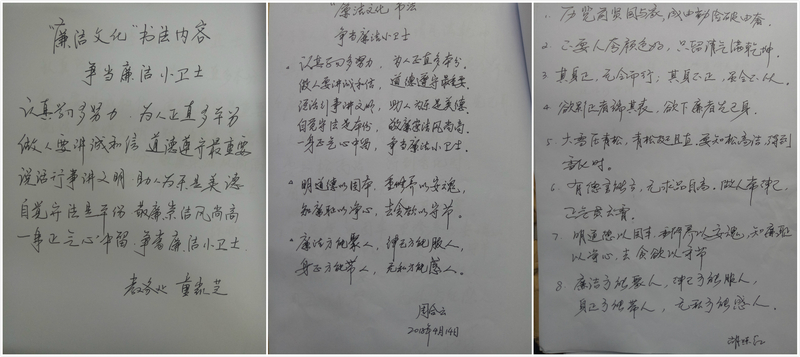 “廉洁文化”书法内容
争当廉洁小卫士
认真学习多努力,为人正直多本分
做人要讲诚和信 道德遵守最重要
说话行事讲文明 助人为乐是美德
自觉守法是本份 敬廉崇洁风尚高
一身正气心中留 争当廉洁小卫士
教务处
“廉洁文化”书法
争当廉洁小卫士
认真学习多努力,为人正直多本分,
做人要讲诚和信,道德遵守最重要
说话行事讲文明,助人为乐是美德
自觉守法是本份,敬廉崇洁风尚高
一身正气心中留,争当廉洁小卫士。
明道德以固本,重修养以安魂,
知廉耻以净心,去贪欲以守节。
廉洁方能聚人,律己方能服人,
身正方能带人,无私方能感人。
2018年4月14日
1. 历览前贤国与家,成由勤俭破由奢.
2. 不要人夸颜色好,只留清气满乾坤.
3 其身正,无令而行;其身不正,虽令不从.
4. 欲影正者端其表,欲下廉者先己身.
5. 大雪压青松,青松挺且直.要知松高洁,待到
雪化时.
6. 有德官, 无求品自高.做人本
正气贯
7. 明道德以固本 重修养以安魂,知廉耻
以净心,去贪欲以守节
8. 廉洁方能聚人,律己方能服人,
身正方能带人,无私方能感人.